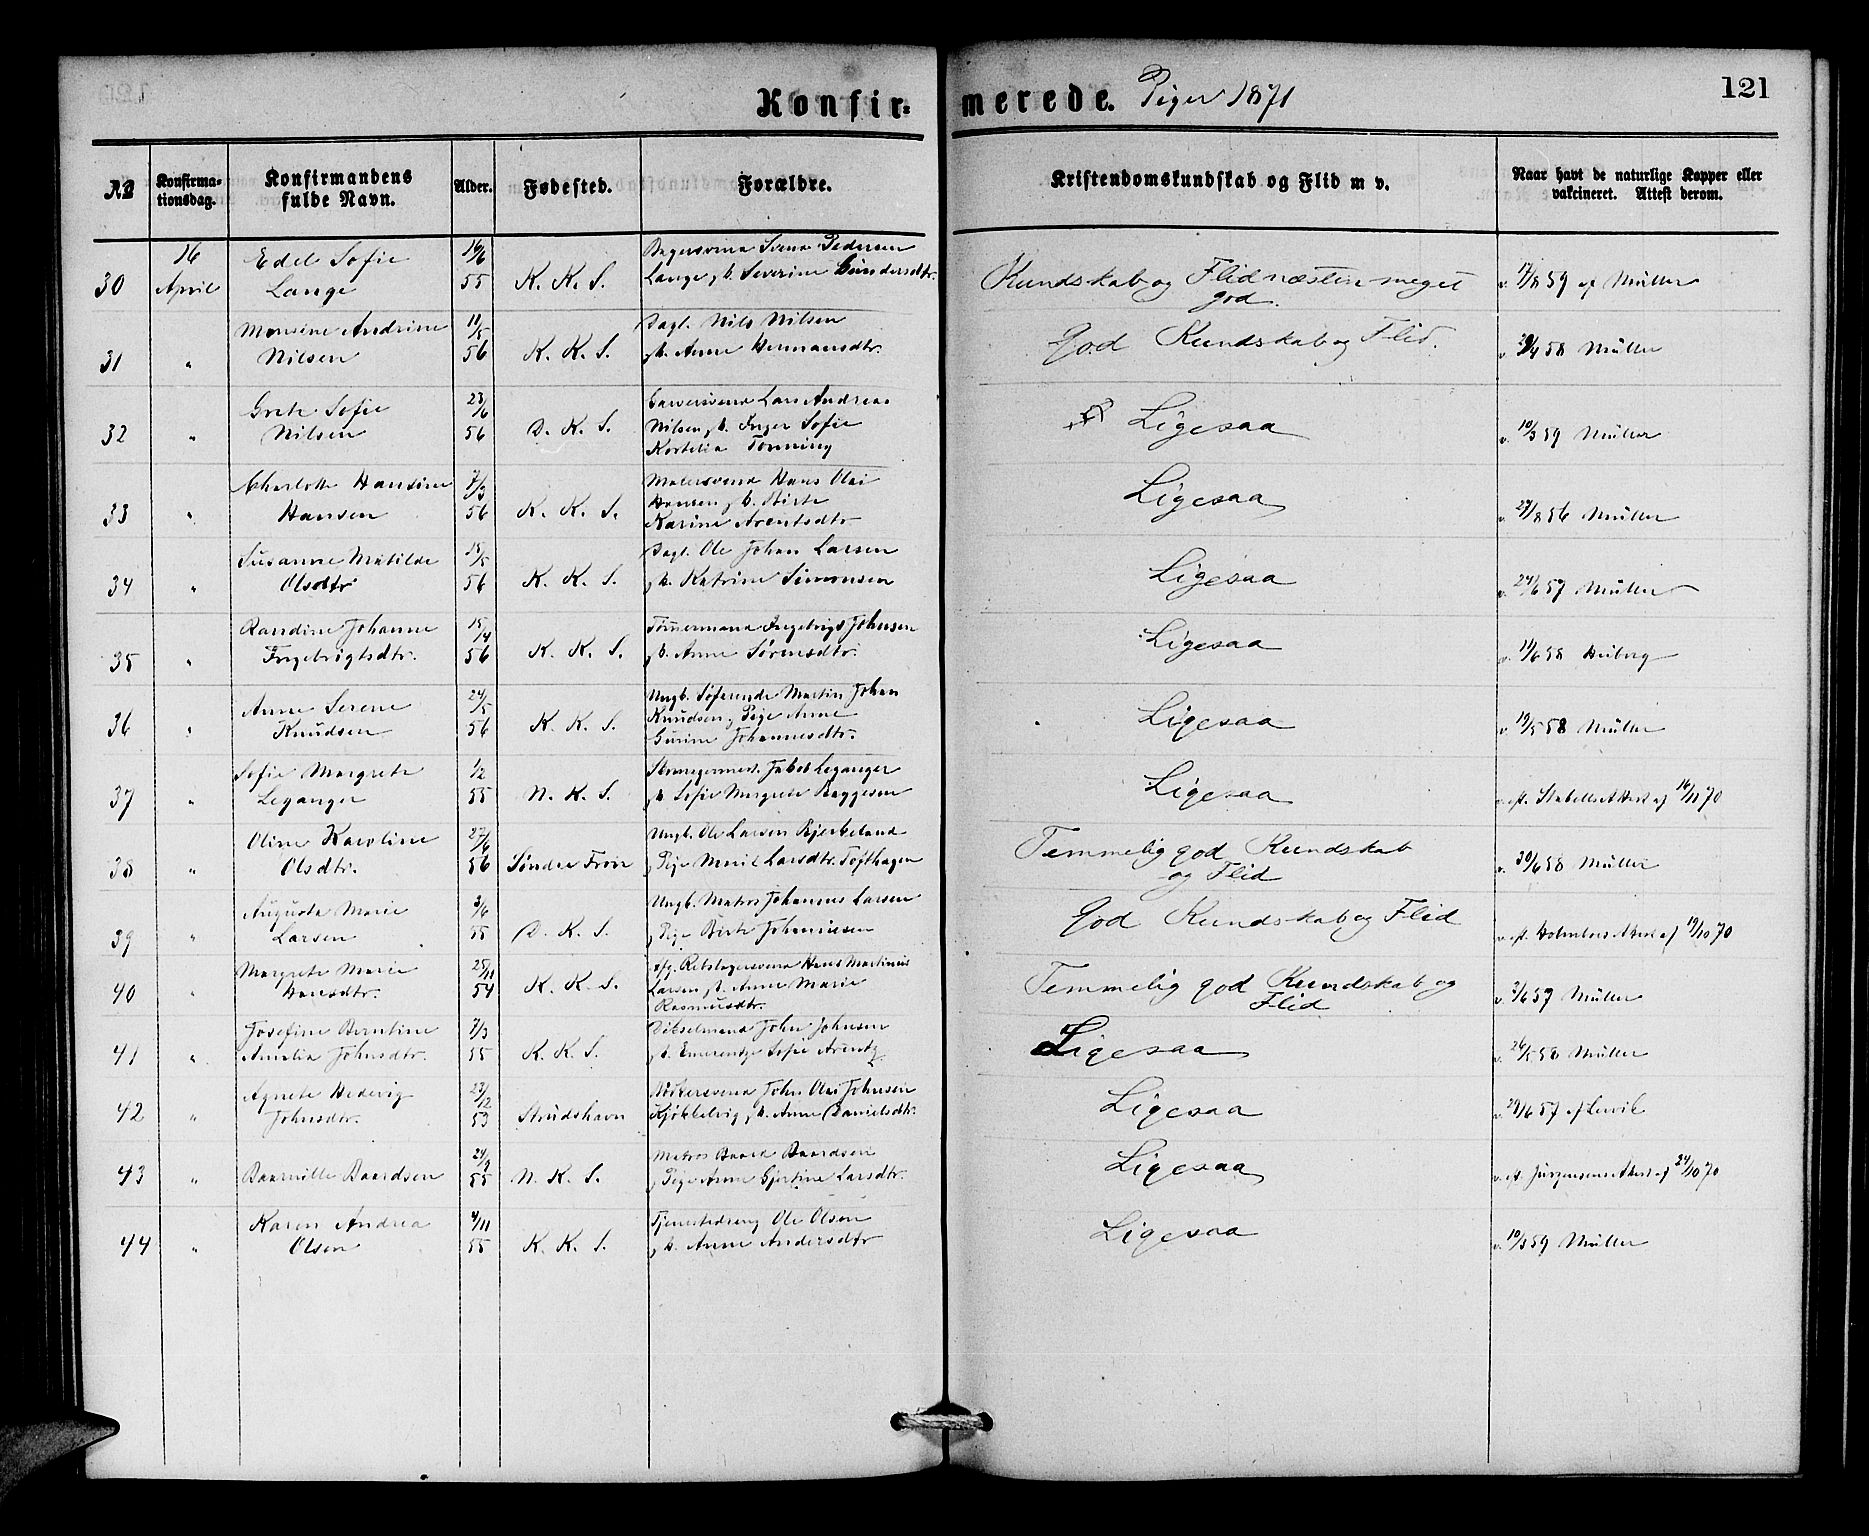 Konfir=
merede. Piger 1871
121
No
Konfirma=
tionsdag.
Konfirmandens
fulde Navn.
Alder.
Fødested.
Forældre.
Kristendomskundskab og Flid m v.
Naar havt de naturlige Kopper eller
vakcineret. Attest derom.
30 16 April Edel Sofie Lange 55 K. K. S. Svend Pedersen
Lange, h. Severine Gundersdtr.
Kundskab og Flid næsten meget god. v. 59 af Müller
31 " Monsine Andrine Nilsen 11/5 56 K. K. S. Dagl. Nils Nilsen
h. Anne Hermansdtr. God Kundskab og Flid. 58 Müller
32 " Grete Sofie Nilsen 23/6 56 D. K. S. Garversvend Lars Andreas
Nilsen, h. Inger Sofie
Tonning Ligesaa v. 10/3 59 Müller
33 " Charlotte Hansine Hansen 7/3 56 K. K. S. Malersvend Hans Olai
Hansen, h. Birte
Karine Arentsdtr Ligesaa v. 56 Müller
34 " Susanne Matilde Olsdtr 15/5 56 K. K. S. Dagl. Ole Johan Larsen
h. Katrine Simonsen Ligesaa v. 24/6 57 Müller
35 " Randine Johanne Ingebrigtsdtr. 15/4 56 K. K. S. Tømermand Ingebrigt Johnsen
h. Anne Sørensdtr Ligesaa v. 11/6 58 Heiberg
36 " Anne Serene Knudsen 24/5 56 K. K. S. Ungk. Søfarende Martin Johan
Knudsen, Pige Anne
Gurine Johannesdtr. Ligesaa v. 19/5 58 Müller
37 " Sofie Margrete Leganger 1/2 55 N. K. S. Jakob Leganger
h. Sofie Margrete Baggesen Ligesaa v. eft. Attest af 16/11 70
38 " Oline Karoline Olsdtr. 27/6 56 Søndre Froie Ungk. Ole Larsen Bjerkeland
Pige Marit Larsdtr. Tofthagen Temmelig god Kundskab
og Flid v. 30/6 58 Müller
39 " Augusta Marie Larsen 3/6 55 D. K. S. Ungk. Matros Johannes Larsen
Pige Birte Johannesen God Kundskab og Flid v. eft. Holmboes Attest af 19/10 70
40 " Margrete Marie Hansdtr. 25/11 54 K. K. S. Afg. Rebslagersvend Hans Martinius
Larsen, h. Anne Marie
Rasmusdtr. Temmelig god Kundskab og
Flid v. 2/6 57 Müller
41 " Josefine Berntine Amalia Johnsdtr. 7/3 55 K. K. S. John Johnsen
h. Emerentze Sofie Arentz Ligesaa v. 26/5 58 Müller
42 " Agnete Hedevig Johnsdtr. 53 Strudshavn Bødkersvend John Olai Johnsen
Kjøkkelvig, h. Anne Danielsdtr. Ligesaa v. 29/6 57 af Lervik
43 " Baarnille Baardsen 55 N. K. S. Matros Baard Baardsen
Pige Anne Gjertine Larsdtr. Ligesaa v. eft. Jürgensens Attest af 24/10 70
44 " Karen Andrea Olsen 4/11 55 K. K. S. Tjenestedreng Ole Olsen
h. Anne Andersdtr Ligesaa v. 10/3 59 Müller